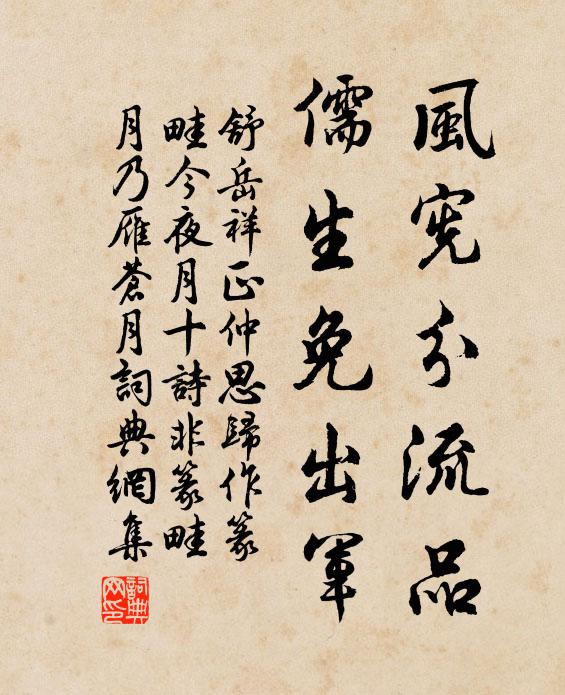 風憲分流品
儒生免出軍
舒岳祥正仲思歸作篆
畦今夜月十詩非篆畦
月乃雁蒼月詞典網集
詞典
网印